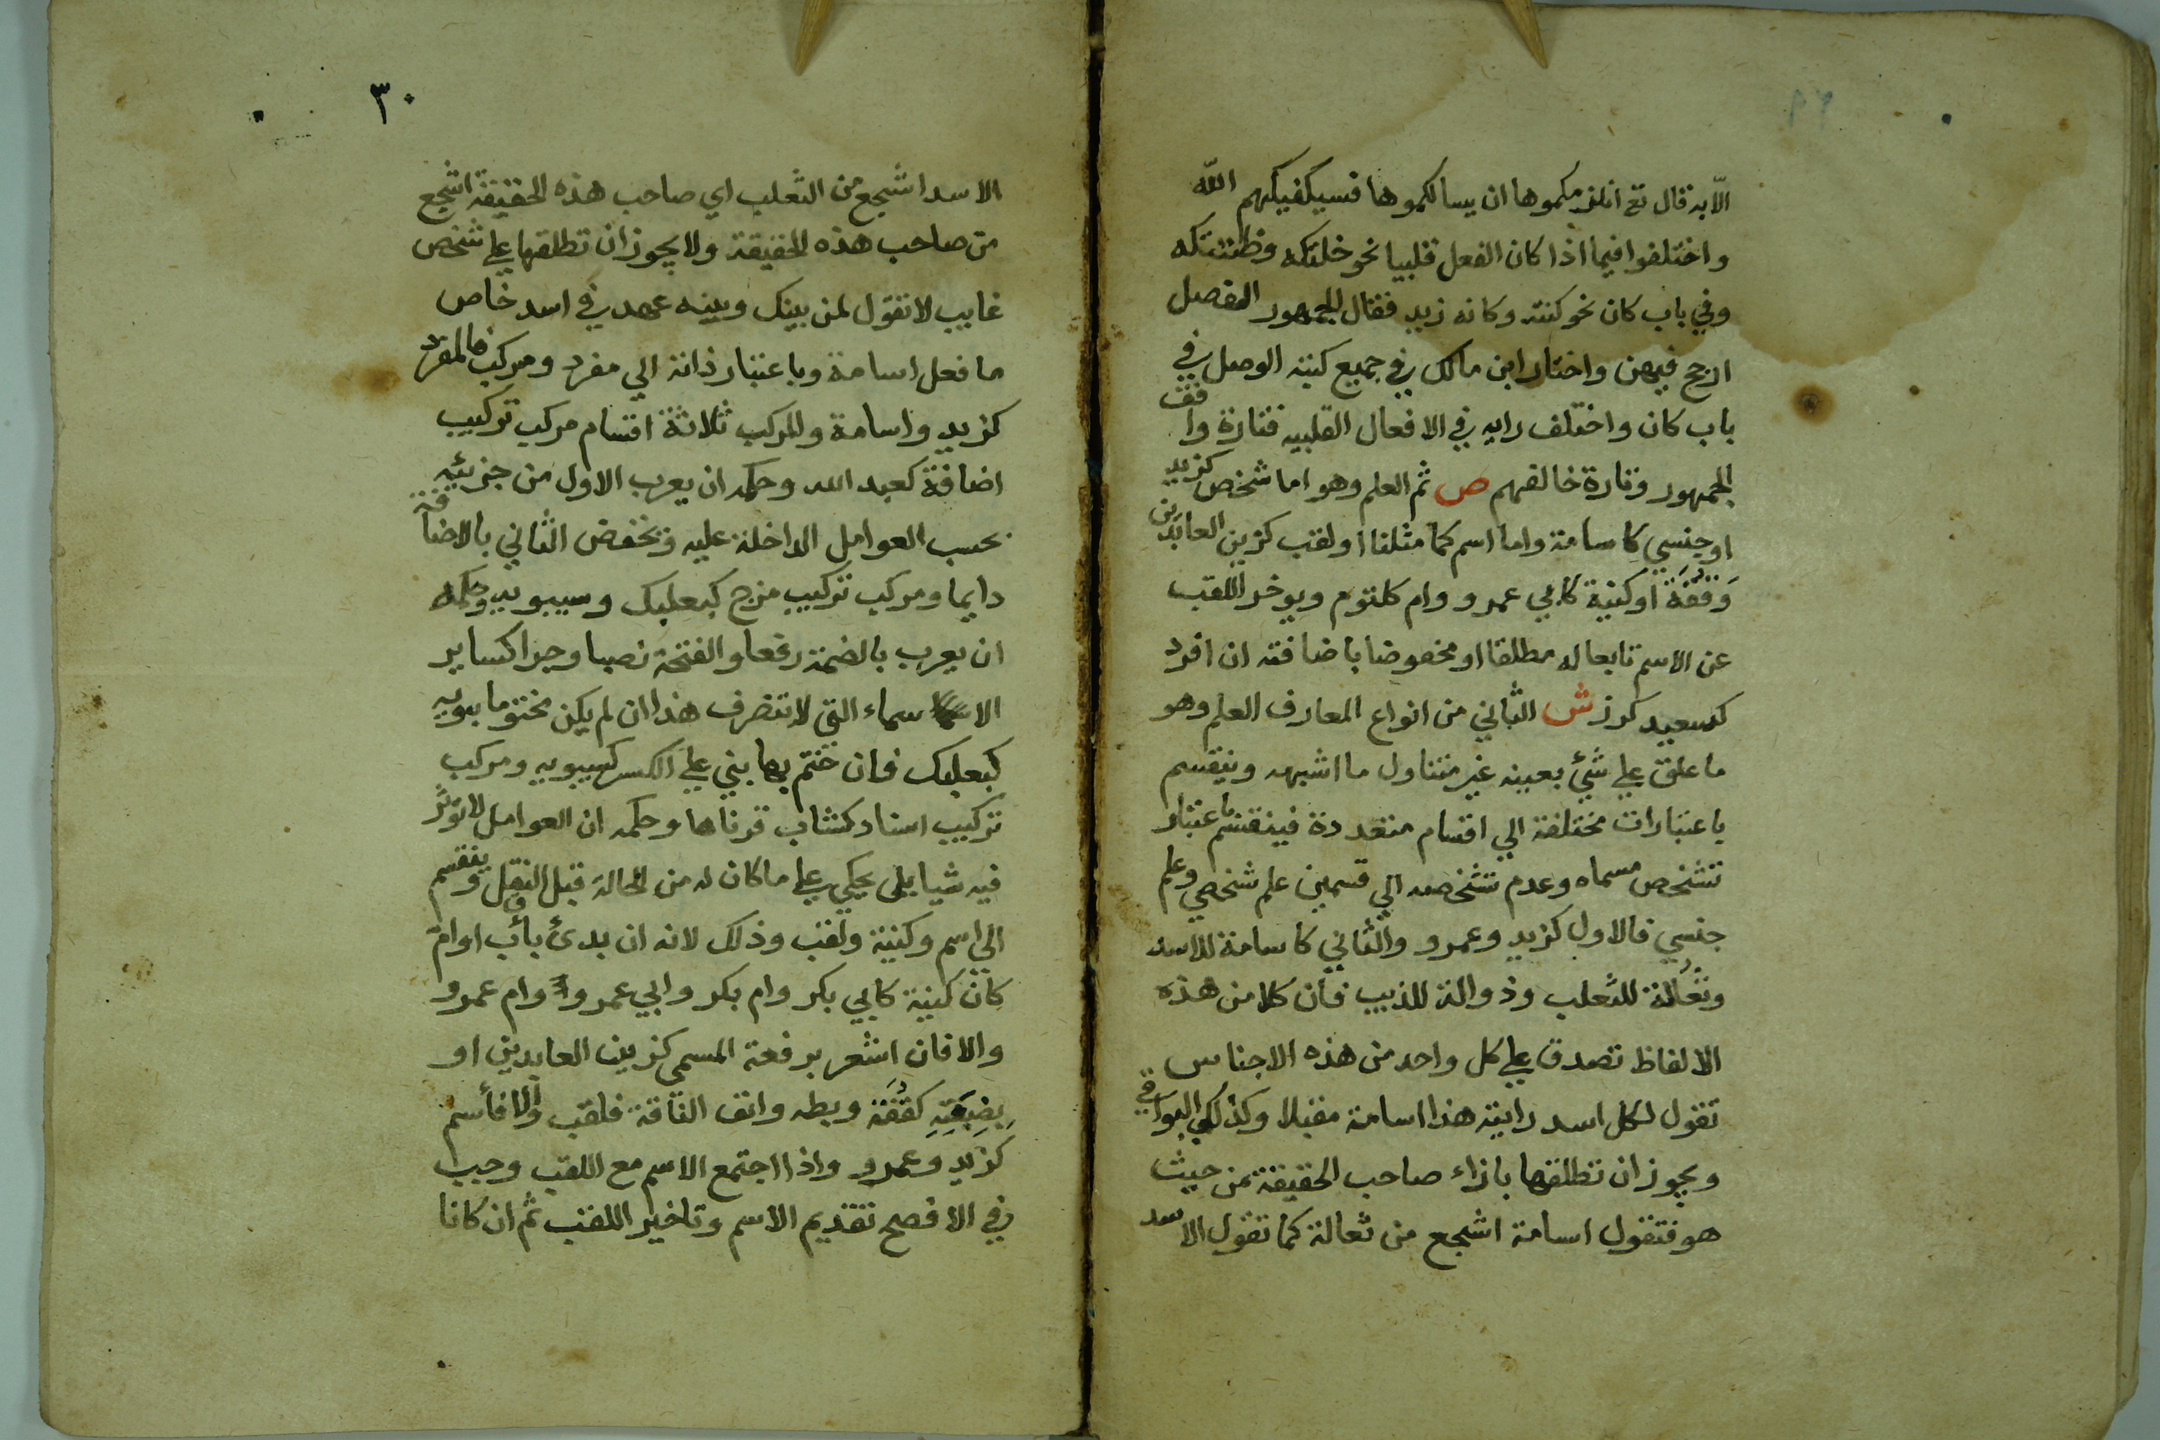 الّا به قال تع انلزمكموها ان يسالكموها فسيكفيكهم الله
واختلفوا فيما اذا كان الفعل قلبيا نحو خلتكه وظننتكه
وفي باب كان نحو كنته وكانه زيد فقال الجمهور الفصل
ارجح فيهن واختار ابن مالك في جميع كتبه الوصل في
باب كان واختلف رايه في الافعال القلبيه فتارة وافق
الجمهور وتارة خالفهم ص ثم العلم وهو اما شخص كزيد
او جنسي كاسامة واما اسم كما مثلنا او لقب كزين العابدين
وَقُفَّة او كنية كابي عمرو وام كلثوم ويوخر اللقب
عن الاسم تابعا له مطلقا او مخفوضا باضافته ان افرد
كسعيد كرز ش الثاني من انواع المعارف العلم وهو
ما علق علي شئ بعينه غير متناول ما اشبهه وينقسم
باعتبارات مختلفة الي اقسام متعددة فينقسم باعتبار
تشخص مسماه وعدم تشخصه الي قسمين علم شخصي وعلم
جنسي فالاول كزيد وعمرو والثاني كاسامة للاسد
وثُعالة للثعلب وذوالة للذيب فان كلا من هذه
الالفاظ تصدق علي كل واحد من هذه الاجناس
تقول لكل اسد رايته هذا اسامة مقبلا وكذلك البواقي
ويجوز ان تطلقها بازاء صاحب الحقيقة من حيث
هو فتقول اسامة اشجع من ثعالة كما تقول الاسد
٣٠
الاسد اشجع من الثعلب اي صاحب هذه الحقيقة اشجع
من صاحب هذه الحقيقة ولا يجوز ان تطلقها علي شخص
غايب لا تقول لمن بينك وبينه عهد في اسد خاص
ما فعل اسامة وباعتبار ذاته الي مفرد ومركب فالمفرد
كزيد واسامة والمركب ثلاثة اقسام مركب تركيب
اضافة كعبد الله وحكمه ان يعرب الاول من جزئيه
بحسب العوامل الداخلة عليه ويخفض الثاني بالاضافة
دايما ومركب تركيب مزج كبعلبك وسيبويه وحكمه
ان يعرب بالضمة رفعا والفتحة نصبا وجرا كساير
الاسماء التي لا تنصرف هذا ان لم يكن مختوما بويه
كبعلبك فان ختم بها بني علي الكسر كسيبويه ومركب
تركيب اسناد كشاب قرناها وحكمه ان العوامل لا توثر
فيه شيا بل يحكي علي ما كان له من الحالة قبل النقل وينقسم
الي اسم وكنية ولقب وذلك لانه ان بدئ بأب او ام
كان كنية كابي بكر وام بكر وابي عمرو وام عمرو
والا فان اشعر برفعة المسمي كزين العابدين او
بِضِعَتِهِ كقُفَّة وبطه وانف الناقة فلقب والا فأسم
كزيد وعمرو واذا اجتمع الاسم مع اللقب وجب
في الافصح تقديم الاسم وتاخير اللقب ثم ان كانا